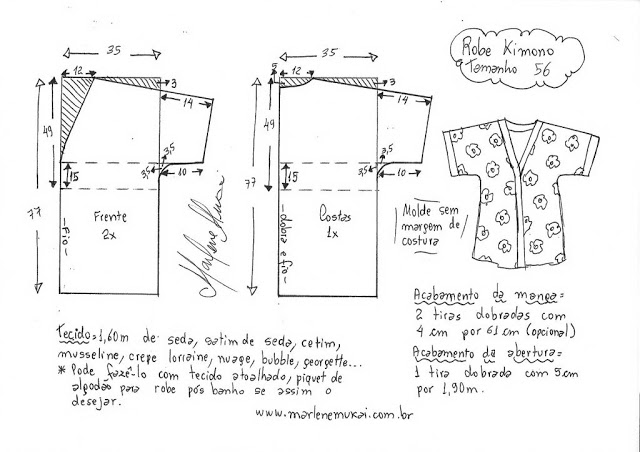 Robe Kimono
Tamanho 56
35
12
3
14
49
77
3,5
3,5
10
15
Frente
2x
-fio-
Marlene Mukai
35
5
12
3
14
49
77
3,5
3,5
10
15
Costas
1x
-dobra e fio-
Molde sem
margem de
costura
Acabamento da manga=
2 tiras dobradas com
4 cm por 61 cm (opcional)
Acabamento da abertura=
1 tira dobrada com 5 cm
por 1,90m.
Tecido=1,60m de seda, satim de seda, cetim,
musseline, crepe lorraine, nuage, bubble, georgette...
* Pode fazê-lo com tecido atoalhado, piquet de
algodão para robe pós banho se assim o
desejar.
www.marlenemukai.com.br